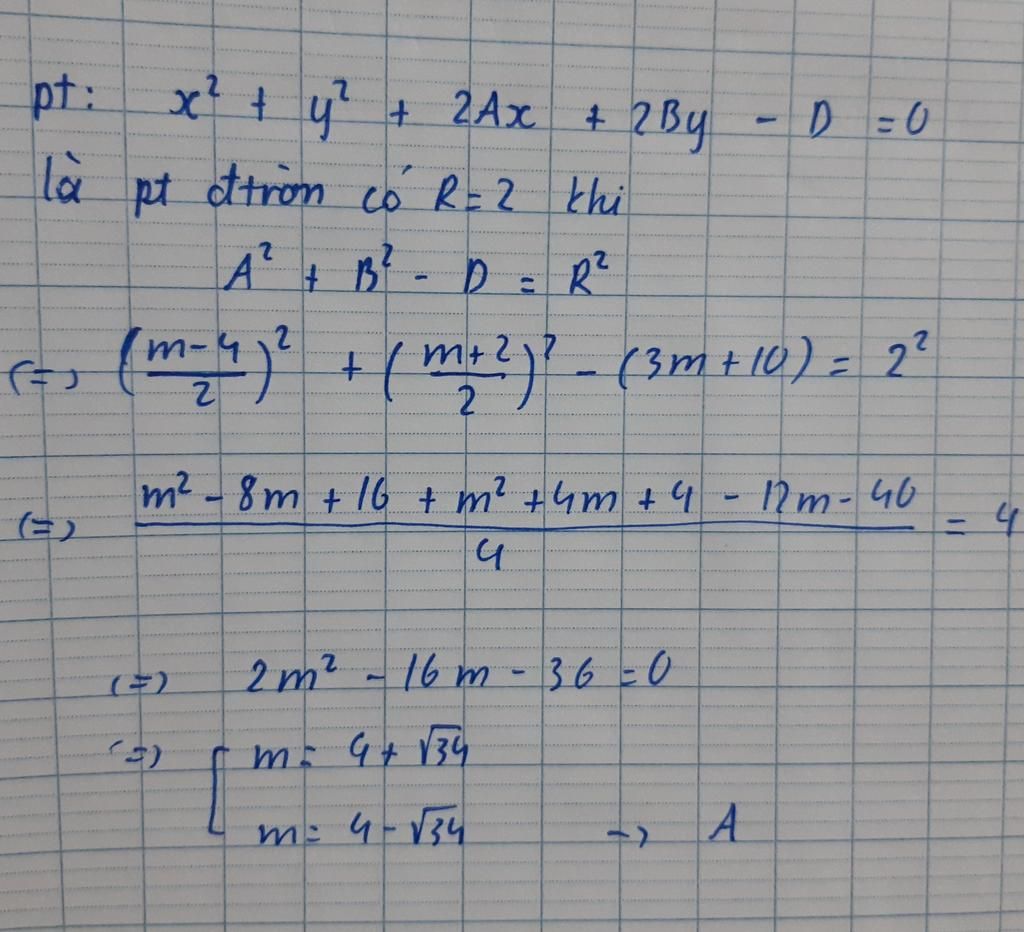 pt: x² + y² + 2Ax + 2By - D = 0
là pt đtròn có R = 2 khi
A² + B² - D = R²
(=) (m-4/2)² + (m+2/2)² - (3m+10) = 2²
(=) m² - 8m + 16 + m² + 4m + 4 - 12m - 40 / 4 = 4
(=) 2m² - 16m - 36 = 0
(=) [ m = 4 + √34
m = 4 - √34 → A